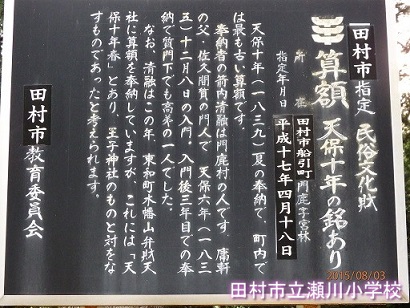 田村市指定 民俗文化財
算額 天保十年の銘あり
所在 田村市船引町門鹿字宮林
指定年月日 平成十七年四月十八日
天保十年(一八三九)夏の奉納で、町内で
は最も古い算額です。
奉納者の箭内清融は門鹿村の人です。庸軒
の父、佐久間質の門人で、天保六年(一八三
五)十二月八日の入門。入門後三年目での奉
納で質門下でも高弟の一人でした。
なお、清融はこの年、東和町木幡山弁財天
社に算額を奉納していますが、これには「天
保十年春」とあり、王子神社のものと対をな
すものであったと考えられます。
田村市教育委員会
2015/08/03
田村市立瀬川小学校